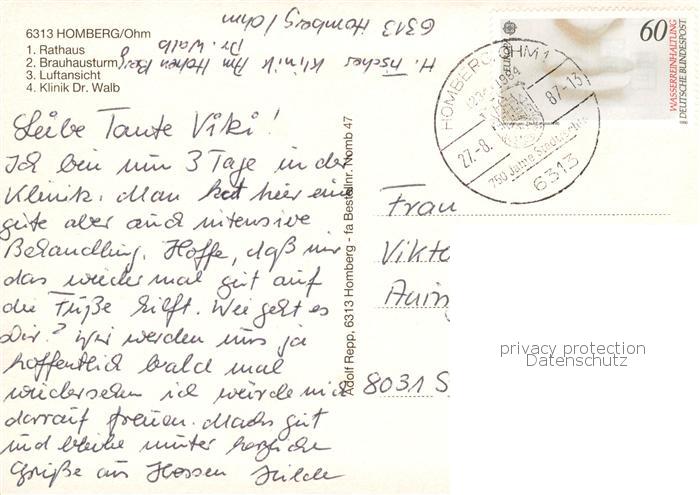 6313 HOMBERG/Ohm
1. Rathaus
2. Brauhausturm
3. Luftansicht
4. Klinik Dr. Walb
H. Fischer Klinik Am Hohen Berg
Dr. Walb
6313 Homberg/Ohm
Liebe Tante Viki!
Ich bin nun 3 Tage in der
Klinik. Man hat hier eine
gute aber auch intensive
Behandlung. Hoffe, daß mir
das wieder mal gut auf
die Füße hilft. Wie geht es
Dir? Wir werden uns ja
hoffentlich bald mal
wiedersehen ich würde mich
darauf freuen. Machs gut
und bleibe munter herzliche
Grüße aus Hessen Hilde
Adolf Repp, 6313 Homberg - fa Bestellnr. Nomb 47
EUROPA
60
WASSERREINHALTUNG
DEUTSCHE BUNDESPOST
HOMBERG, OHM 1
1234-1984
27.-8. 87-13
750 Jahre Stadtrechte
6313
Frau
Vikto
8031 S
privacy protection
Datenschutz